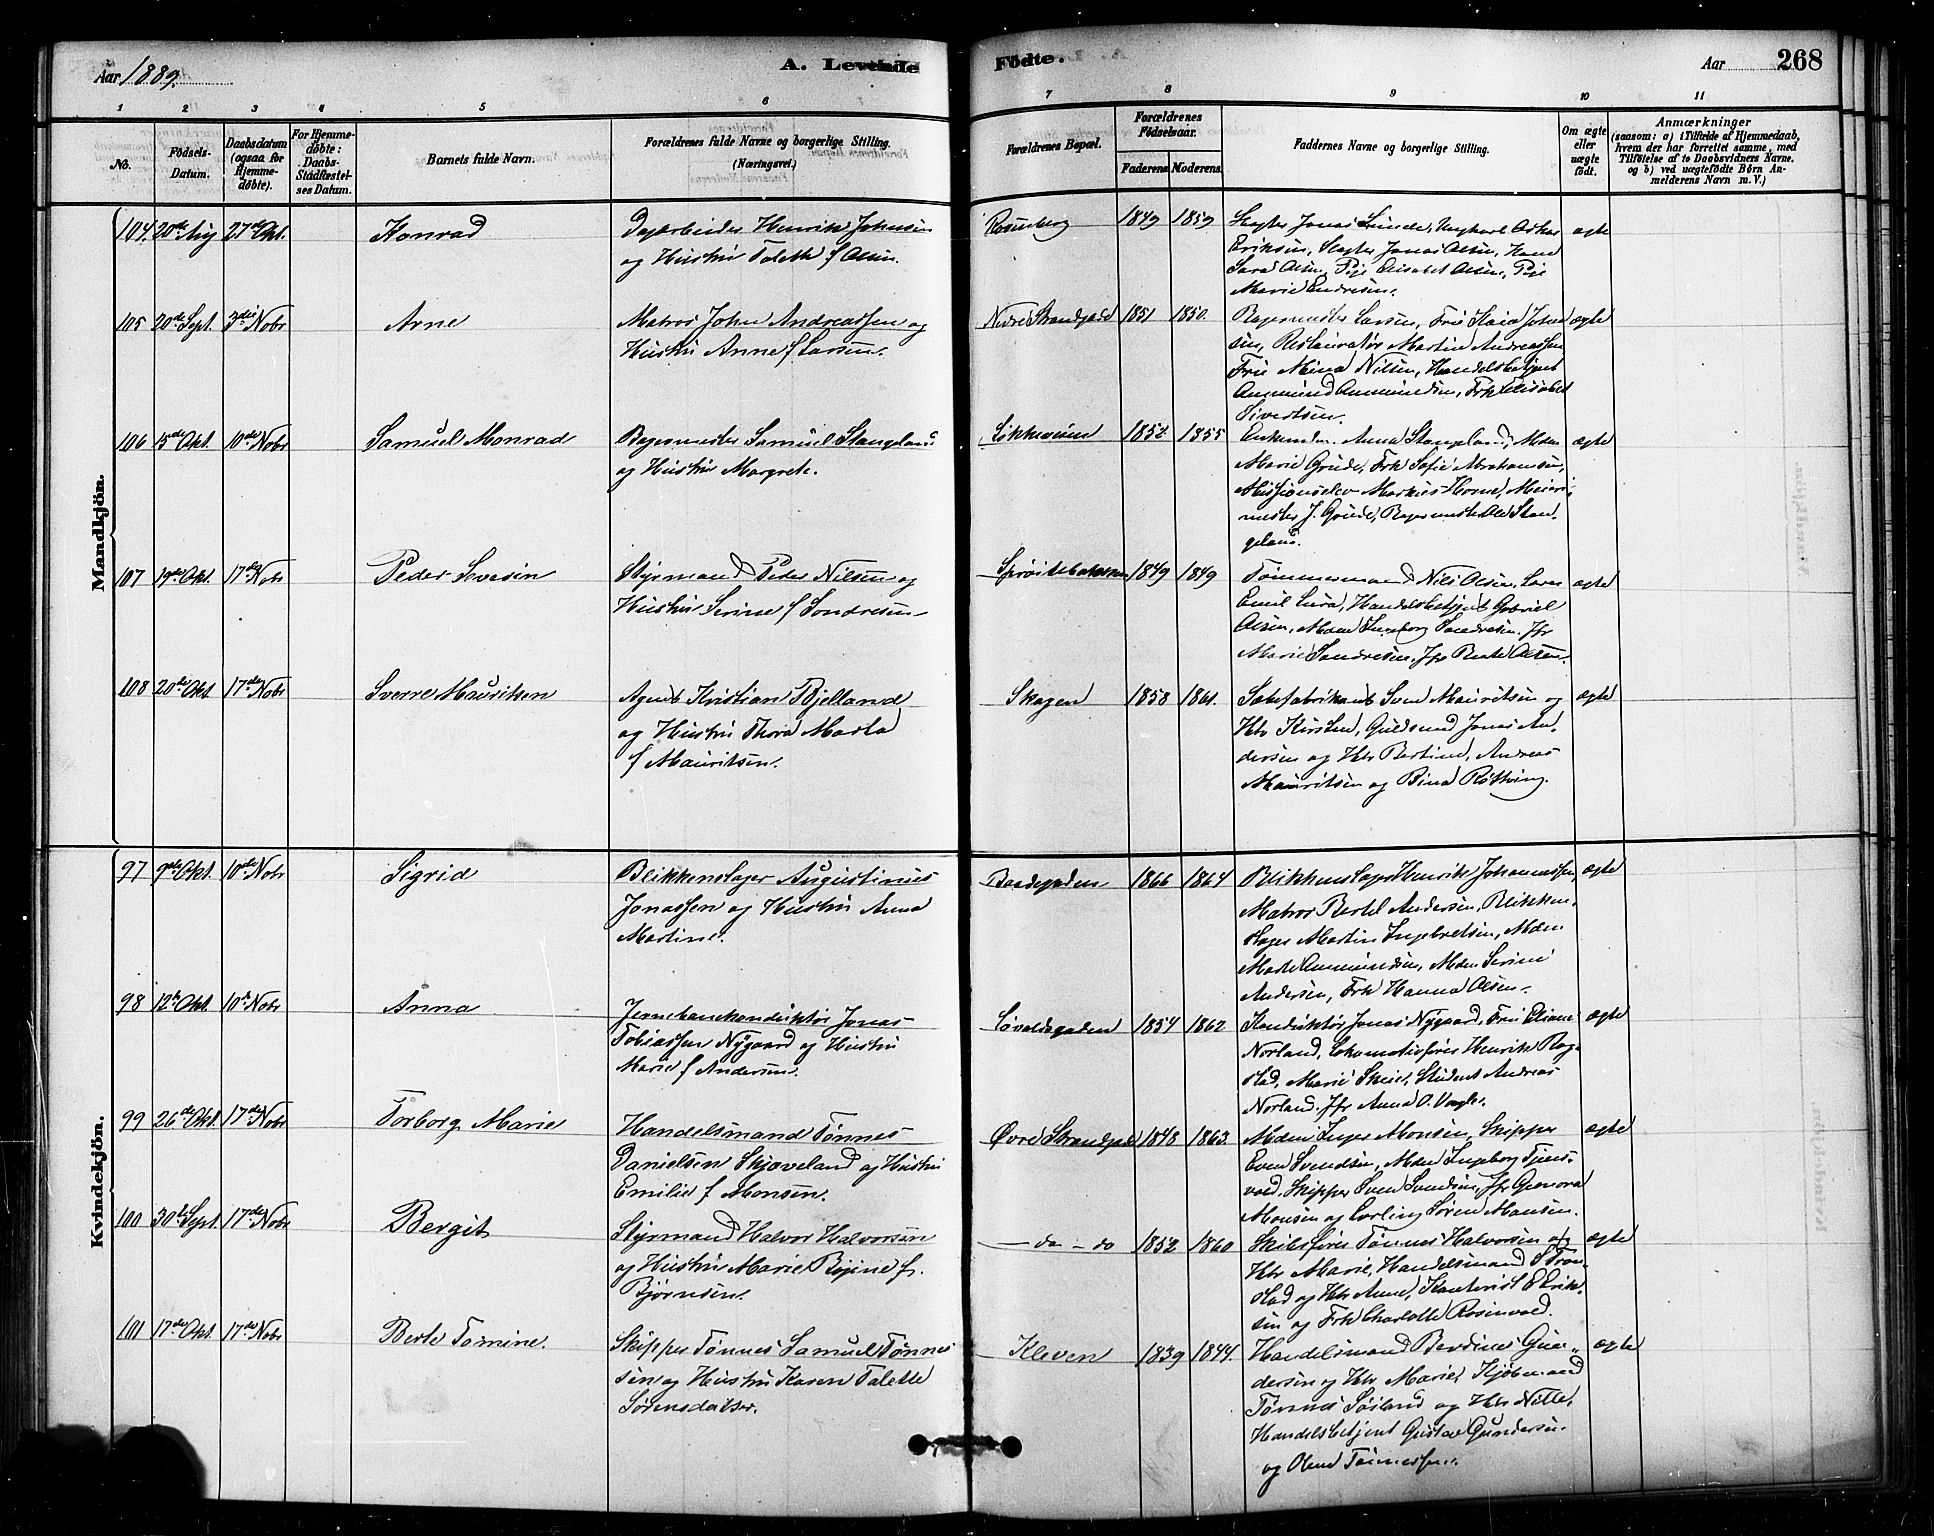 Aar 1889.
A. Levende
Födte.
Aar
268
1 2 3 4 5 6 7 8 9 10 11
No.
Födsels-
Datum.
Daabsdatum
(ogsaa for
Hjemme-
döbte).
For Hjemme-
döbte:
Daabs-
Stadfæstel-
ses Datum.
Barnets fulde Navn.
Forældrenes fulde Navne og borgerlige Stilling.
(Næringsvei.)
Forældrenes Bopæl.
Forældrenes
Födselsaar.
Faderens
Moderens.
Faddernes Navne og borgerlige Stilling.
Om ægte
eller
uægte
födt.
Anmærkninger
(saasom: a) i Tilfælde af Hjemmedaab,
hvem der har forrettet samme, med
Tilföielse af to Daabsvidners Navne,
og b) ved uægtefödte Börn An-
melderens Navn m. V.)
Mandkjön.
104. 20de Aug 27de Okt. Konrad
Dagarbeider Henrik Johnsen
og Hustru Talette f Olsen.
Rosenberg 1849 1859
Slagter Jonas Lunde, Ungkarl Oskar
Eriksen, Slagter Jonas Olsen, Kone
Sara Olsen, Pige Elisabet Olsen, Pige
Marie Endresen.
ægte
105 20de Sept. 3die Nobr Arne
Matros John Andreassen og
Hustru Anne f Larsen.
Nedre Strandgade 1851 1850.
Bagermester Larsen, Frue Kaia John
sen, Restauratør Martin Andreassen
Frue Mina Nilsen, Handelsbetjent
Ommund Ommundsen, Frk Elisabet
Sivertsen.
ægte
106 15de Okt. 10de Nobr Samuel Monrad
Bagermester Samuel Stangeland
og Hustru Margrete.
Løkkeveien 1852 1855
Anna Stangeland, Mdm
Marie Grude, Frk Sofie Abrahamsen,
Missionselev Markus Meieri-
mester J. Grude, Bagermester Ole Stan-
geland.
ægte
107 19de Okt. 17de Nobr Peder Severin
Styrmand Peder Nilsen og
Hustru Serine f Sondresen
1849 1849
Tømmermand Nils Olsen, Lars
Emil Lura, Handelsbetjent Gabriel
Olsen, Mdm Ingeborg Sondresen, Jfr
Marie Sondresen, Jfr Berte Olsen.
ægte
108 20de Okt 17de Nobr Sverre Mauritsen
Agent Kristian Bjelland
og Hustru Thora Marta
f Mauritsen.
Skagen 1858 1861.
Sæbefabrikant Sven Mauritsen og
Htr Kirsten, Guldsmed Jonas An
dersen og Htr Bertine, Andreas
Mauritsen og Bina Røthing.
ægte
Kvindekjön.
97 9de Okt. 10de Nobr Sigrid
Blikkenslager Augustinus
Jonassen og Hustru Anna
Martine.
Bredegaden 1866 1864
Blikkenslager Henrik Johannessen,
Matros Bertel Andersen, Blikken-
slager Martin Ingebretsen, Mdm
Marte Ommundsen, Mdm Serine
Andersen, Frk Hanna Olsen.
ægte
98 12te Okt. 10de Nobr Anna
Jernbanekonduktør Jonas
Tobiassen Nygaard og Hustru
Marie f Andersen.
Løvoldsgaden 1854 1862
Konduktør Jonas Nygaard, Frue Eliane
Norland, Lokomotivfører Henrik Rog-
stad, Marie Skeie, Student Andreas
Norland, Jfr Anna O. Vagle.
ægte
99 26de Okt 17de Nobr Torborg Marie
Handelsmand Tønnes
Danielsen Skjæveland og Hustru
Emilie f Monsen.
Øvre Strandgade 1848 1863.
Mdm Inger Monsen, Skipper
Even Svendsen, Mdm Ingeborg Tjens-
vold, Skipper Sven Svendsen, Jfr Gunora
Monsen og Erling Søren Monsen.
ægte
100 30de Sept. 17de Nobr Bergit
Styrmand Halvor Halvorsen
og Hustru Marie Regine f.
Bjørnsen.
— do — do 1852 1860
Skibsfører Tønnes Halvorsen og
Htr Marie, Handelsmand S Tron-
stad og Htr Anne, Kontorist E Erik-
sen og Frk Charlotte Rosenvold.
ægte
101 17de Okt. 17de Nobr Berte Tomine.
Skipper Tønnes Samuel Tønnes
sen og Hustru Karen Talette
Sørensdatter.
Kleven 1839 1844.
Handelsmand Berdines Gun-
dersen og Htr Marie, Kjøbmand
Tønnes Søiland og Htr Nille,
Handelsbetjent Gustav Gundersen
og Olene Tønnessen.
ægte